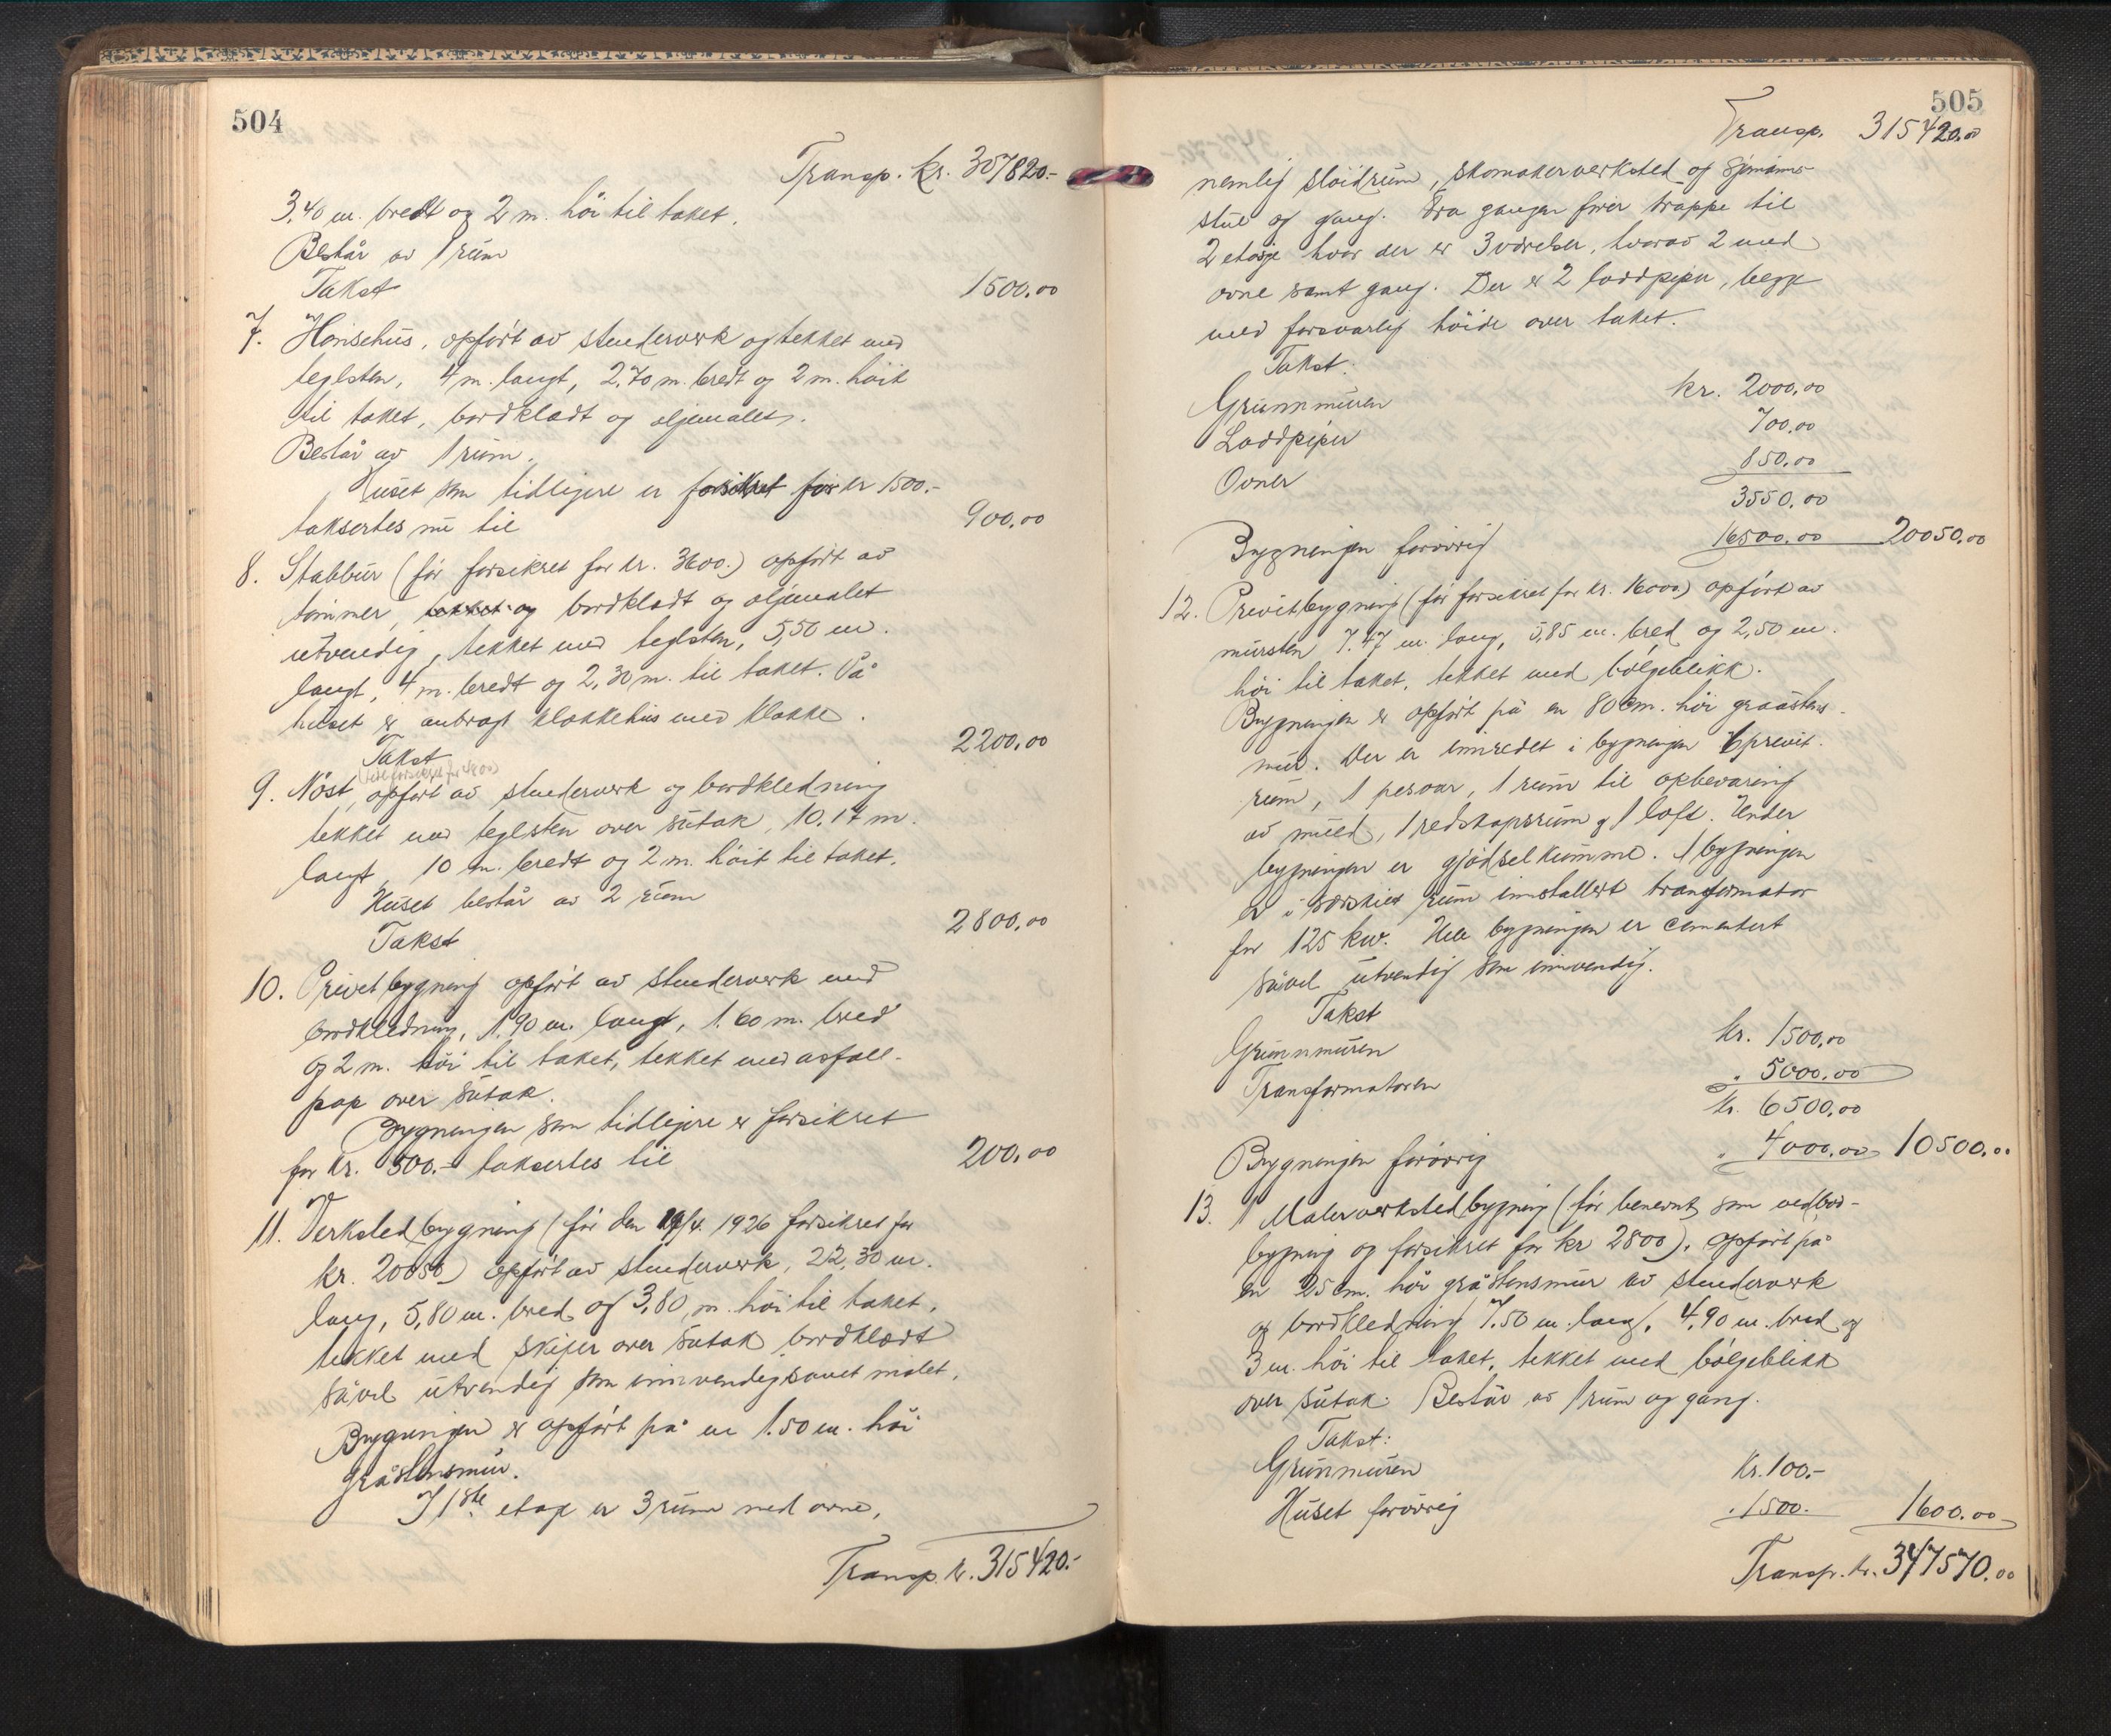 504
Transp. kr. 307820.-
3,40 m. bredt og 2 m. høi til taket.
Består av 1 rum
Takst 1500,00
7. Hønsehus, opført av stenderverk og tekket med
teglsten, 4 m. langt, 2,70 m. bredt og 2 m. høit
til taket, bordklædt og oljemalet.
Består av 1 rum.
Huset som tidligere er forsikret for kr 1500.-
taksertes nu til 900,00
8. Stabbur (før forsikret for kr. 3600.) opført av
tømmer, tekket og bordklædt og oljemalet
utvendig, tekket med teglsten, 5,50 m.
langt, 4 m. bredt og 2,30 m. til taket. På
huset er anbragt klokkehus med klokke.
Takst 2200,00
9. Nøst, opført av stenderverk og bordkledning
tekket med teglsten over sutak, 10.17 m.
langt, 10 m. bredt og 2 m. høit til taket.
Huset består av 2 rum
Takst 2800,00
10. Privetbygning opført av stenderverk med
bordkledning, 1,90 m. langt, 1.60 m. bred
og 2 m. høi til taket, tekket med asfalt-
pap over sutak.
Bygningen som tidligere er forsikret
for kr. 500.- taksertes til 200,00
11. Verkstedbygning (før den 19/4. 1926 forsikret for
kr. 20050) opført av stenderverk, 22,30 m.
lang, 5,80 m. bred og 3,80 m. høi til taket,
tekket med skifer over sutak bordklædt
såvel utvendig som innvendig samt malet.
Bygningen er opført på en 1.50 m. høi
gråstensmur.
I 1ste etage er 3 rum med ovne,
Transp. kr. 315420.-
505
Transp. 315420.00
nemlig sløidrum, skomakerverksted og sjømans-
stue og gang. Fra gangen fører trappe til
2 etasje hvor der er 3 værelser, hvorav 2 med
ovne samt gang. Der er 2 loddpiper, begge
med forsvarlig høide over taket.
Takst:
Grunnmuren kr. 2000,00
Loddpiper 700,00
Ovner 850,00
3550,00
Bygningen forøvrig 16500,00 20050,00
12. Privetbygning (før forsikret for kr. 16000) opført av
mursten 7.47 m. lang, 5,85 m. bred og 2,50 m.
høi til taket, tekket med bølgeblikk.
Bygningen er opført på en 80 cm. høi graastens-
mur. Der er innredet i bygningen 6 privet-
rum, 1 pesoar, 1 rum til opbevaring
av muld, 1 redskapsrum og 1 loft. Under
bygningen er gjødselkumme. I bygningen
er i særskilt rum innstallert transformator
for 125 kw. Hele bygningen er cementert
såvel utvendig som innvendig.
Takst
Grunnmuren kr. 1500,00
Transformatoren " 5000,00
kr. 6500,00
Bygningen forøvrig " 4000,00 10500,00
13. 1 Malerverkstedbygning (før benevnt som vedbod-
bygning og forsikret for kr 2800). Opført på
en 25 cm. høi gråstensmur av stenderverk
og bordkledning 7.50 m. lang, 4,90 m. bred og
3 m. høi til taket, tekket med bølgeblikk
over sutak. Består av 1 rum og gang.
Takst:
Grunmuren Kr. 100.-
Huset forøvrig " 1500.- 1600.00
Transp. kr. 347570.00